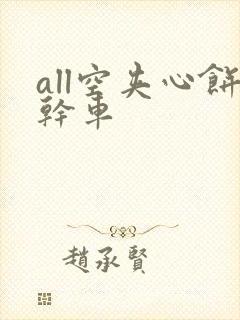 all空夹心餅
幹車
趙承賢